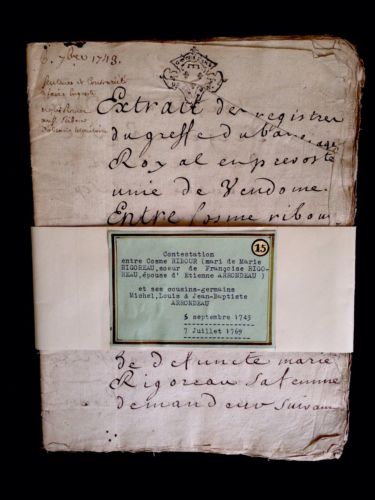 6. 7bre 1743.
Extrait des registres
du greffe du bailliage
Royal en prevosté
unie de Vendome.
Entre Cosme ribour
15
Contestation
entre Cosme RIBOUR (mari de Marie
RIGOREAU, soeur de Françoise RIGO-
REAU, épouse d'Etienne ARRONDEAU )
et ses cousins-germains
Michel, Louis & Jean-Baptiste
ARRONDEAU
6 septembre 1743
7 Juillet 1769
de defuncte marie
Rigoreau sa femme
demandeur suivant